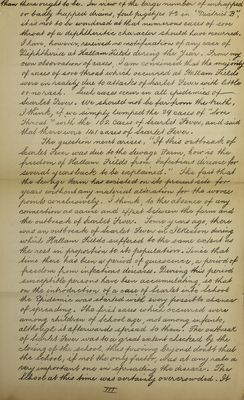 than there ought to be. In view of the large number of untrapped
or badly trapped drains, and privies etc in "District B"
it is not to be wondered at that numerous cases of sore
throat of a diphtheritic character should have occurred.
I have, however, received no notification of any case of
Diphtheria at Hallam Fields during the year. From my
own observation of cases, I am convinced that the majority
of cases of sore throat which occurred at Hallam Fields
were in reality due to attacks of Scarlet Fever with little
or no rash. Such cases occur in all epidemics of
Scarlet Fever. We should not be far from the truth,
I think, if we simply lumped the 29 cases of "Sore
Throat" with the 112 cases of Scarlet Fever, and said
that there were 141 cases of Scarlet Fever.
The question next arises, "If this outbreak of
Scarlet Fever was due to the Sewage Farm, how is the
freedom of Hallam Fields from infectious disease for
several years back to be explained." The fact that
the Sewage Farm has existed on its present site for
years without any material alteration for the worse
points conclusively, I think, to the absence of any
connection as cause and effect between the farm and
the outbreak of Scarlet Fever. Some years ago, there
was an outbreak of Scarlet Fever in Ilkeston during
which Hallam Fields suffered to the same extent as
the rest in proportion to its population. Since that
time there had been a period of quiescence, a period of
freedom from infectious diseases. During this period
susceptible persons have been accumulating so that
on the introduction of a case of Scarlet into School
the Epidemic was started with every possible chance
of spreading. The first cases which occurred were
among children of School age, not among infants,
although it afterwards spread to them. The outbreak
of Scarlet Fever was to a great extent checked by the
closing of the school, thus proving beyond doubt that
the School, if not the only factor, was at any rate a
very important one in spreading the disease. The
School at this time was certainly overcrowded. It
III